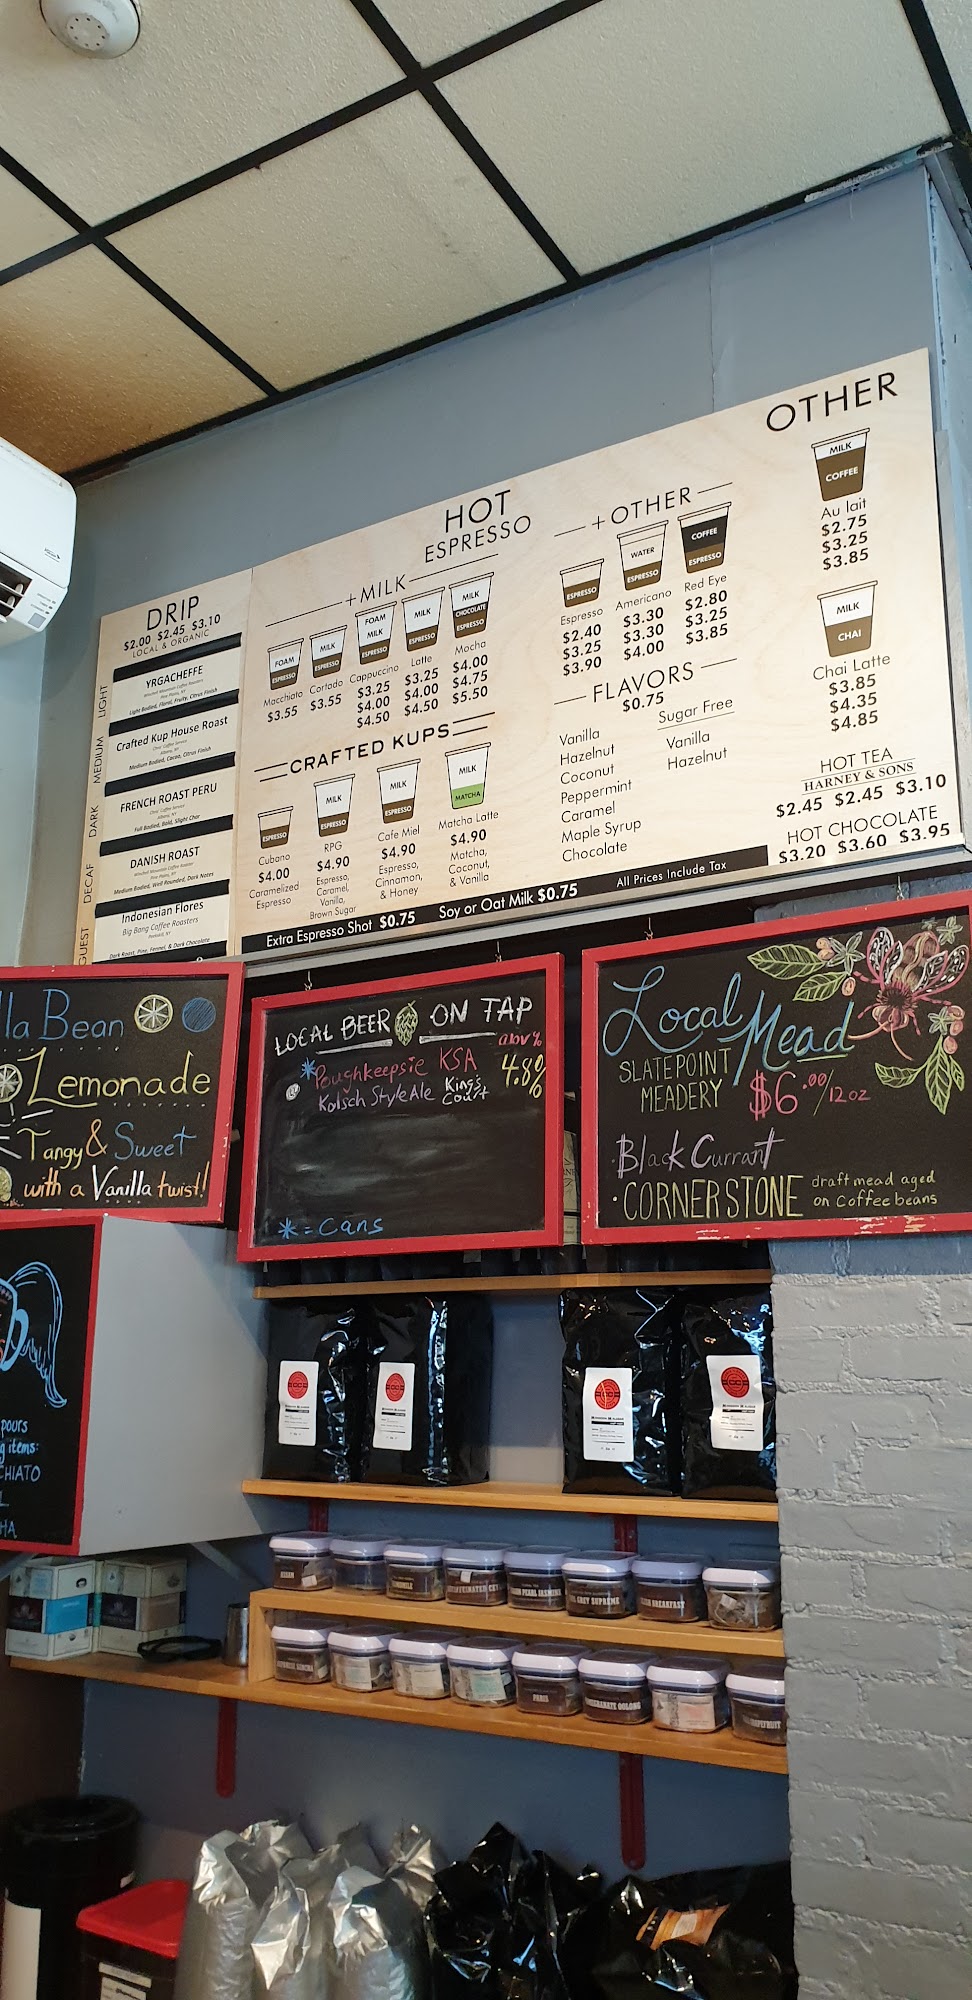 DRIP
$2.00 $2.45 $3.10
LOCAL & ORGANIC
LIGHT
YRGACHEFFE
Light Bodied, Floral, Fruity, Citrus Finish
MEDIUM
Crafted Kup House Roast
Albany, NY
Medium Bodied, Cocoa, Citrus Finish
DARK
FRENCH ROAST PERU
Albany, NY
Full Bodied, Bold, Slight Char
DECAF
DANISH ROAST
Medium Bodied, Well Rounded, Dark Notes
GUEST
Indonesian Flores
Big Bang Coffee Roasters
Peekskill, NY
Dark Roast, Pine, Fennel, & Dark Chocolate
HOT
ESPRESSO
+MILK
FOAM
ESPRESSO
Macchiato
$3.55
MILK
ESPRESSO
Cortado
$3.55
FOAM
MILK
ESPRESSO
Cappuccino
$3.25
$4.00
$4.50
MILK
ESPRESSO
Latte
$3.25
$4.00
$4.50
MILK
CHOCOLATE
ESPRESSO
Mocha
$4.00
$4.75
$5.50
CRAFTED KUPS
ESPRESSO
Cubano
$4.00
Caramelized
Espresso
MILK
ESPRESSO
RPG
$4.90
Espresso,
Caramel,
Vanilla,
Brown Sugar
MILK
ESPRESSO
Cafe Miel
$4.90
Espresso,
Cinnamon,
& Honey
MILK
MATCHA
Matcha Latte
$4.90
Matcha,
Coconut,
& Vanilla
+OTHER
ESPRESSO
Espresso
$2.40
$3.25
$3.90
WATER
ESPRESSO
Americano
$3.30
$3.30
$4.00
COFFEE
ESPRESSO
Red Eye
$2.80
$3.25
$3.85
FLAVORS
$0.75
Vanilla
Hazelnut
Coconut
Peppermint
Caramel
Maple Syrup
Chocolate
Sugar Free
Vanilla
Hazelnut
OTHER
MILK
COFFEE
Au lait
$2.75
$3.25
$3.85
MILK
CHAI
Chai Latte
$3.85
$4.35
$4.85
HOT TEA
HARNEY & SONS
$2.45 $2.45 $3.10
HOT CHOCOLATE
$3.20 $3.60 $3.95
Extra Espresso Shot $0.75 Soy or Oat Milk $0.75 All Prices Include Tax
lla Bean
Lemonade
Tangy & Sweet
with a Vanilla twist!
LOCAL BEER ON TAP
abv%
*Poughkeepsie KSA 4.8%
Kolsch Style Ale King's Court
* = Cans
Local Mead
SLATEPOINT
MEADERY $6.00/12oz
Black Currant
· CORNERSTONE draft mead aged
on Coffee beans
pours
g items:
CHIATO
L
HA
ASSAM
EARL GREY SUPREME
PARIS
POMEGRANATE OOLONG